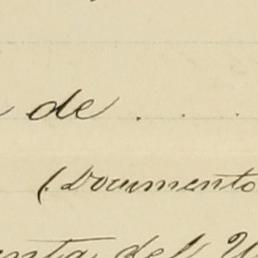 de . . .
(Documento
del